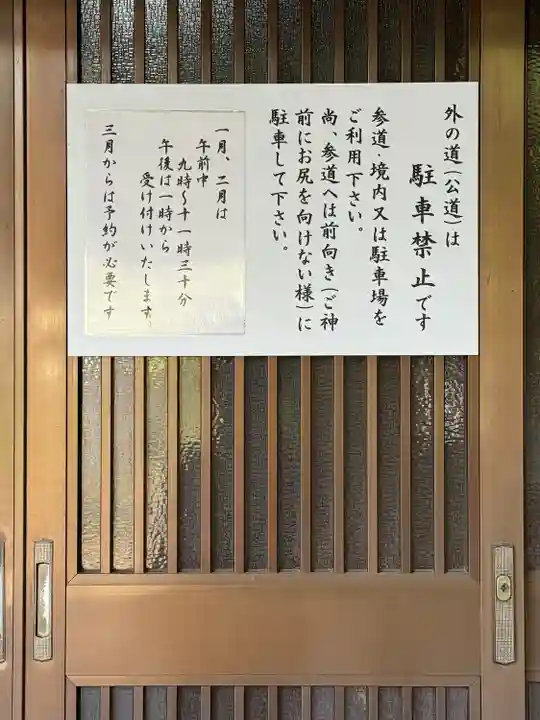 外の道(公道)は
駐車禁止です
参道・境内又は駐車場を
ご利用下さい。
尚、参道へは前向き(ご神
前にお尻を向けない様)に
駐車して下さい。
一月、二月は
午前中
九時〜十一時三十分
午後は一時から
受け付けいたします。
三月からは予約が必要です